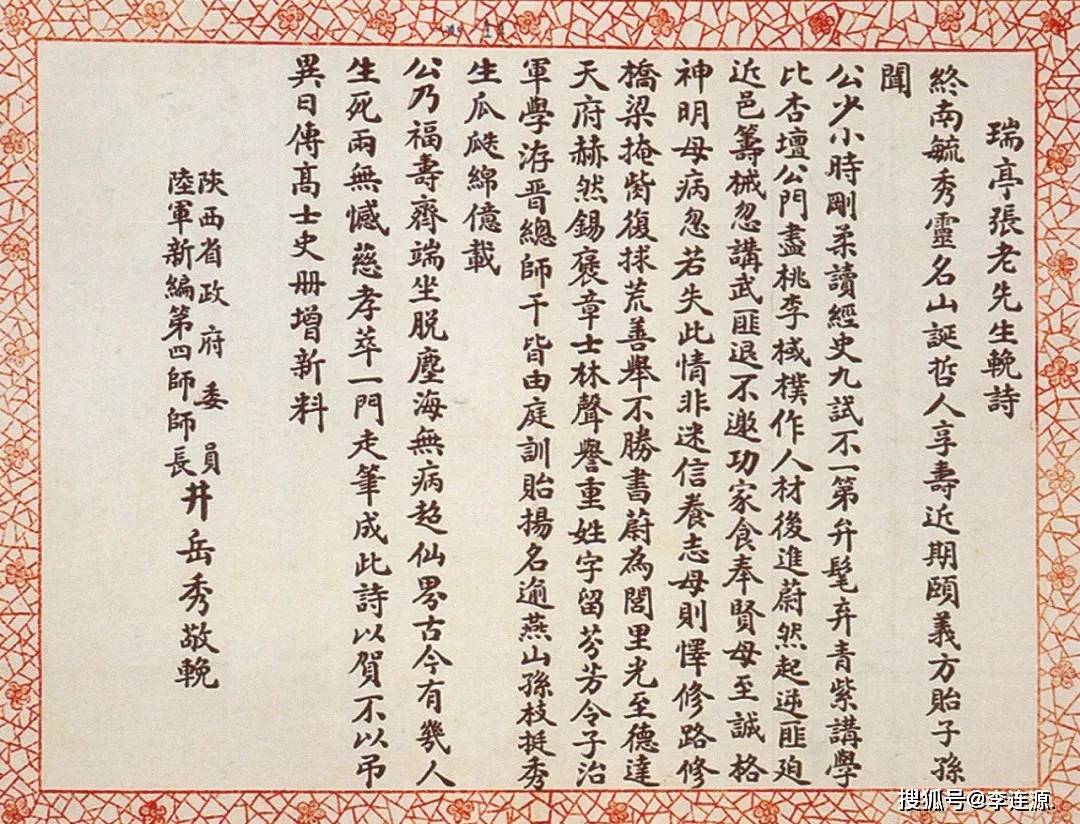 瑞亭張老先生輓詩
終南毓秀靈名山誕哲人享壽近期頤義方貽子孫
聞
公少小時剛柔讀經史九試不一第弁髦弃青紫講學
比杏壇公門盡桃李棫樸作人材後進蔚然起逆匪
近邑籌械忽講武匪退不邀功家食奉賢母至誠格
神明母病忽若失此情非迷信養志母則懌修路修
橋梁掩胔復捄荒善舉不勝書蔚為閭里光至德達
天府赫然錫褒章士林聲譽重姓字留芬芳令子治
軍學洊晋總師干皆由庭訓貽揚名逾燕山孫枝挺秀
生瓜瓞綿億載
公乃福壽齊端坐脱塵海無病超仙界古今有幾人
生死兩無憾慈孝萃一門走筆成此詩以賀不以吊
異日傳高士史册增新料
陝西省政府委員
陸軍新編第四師師長井岳秀敬輓
搜狐号@李连源